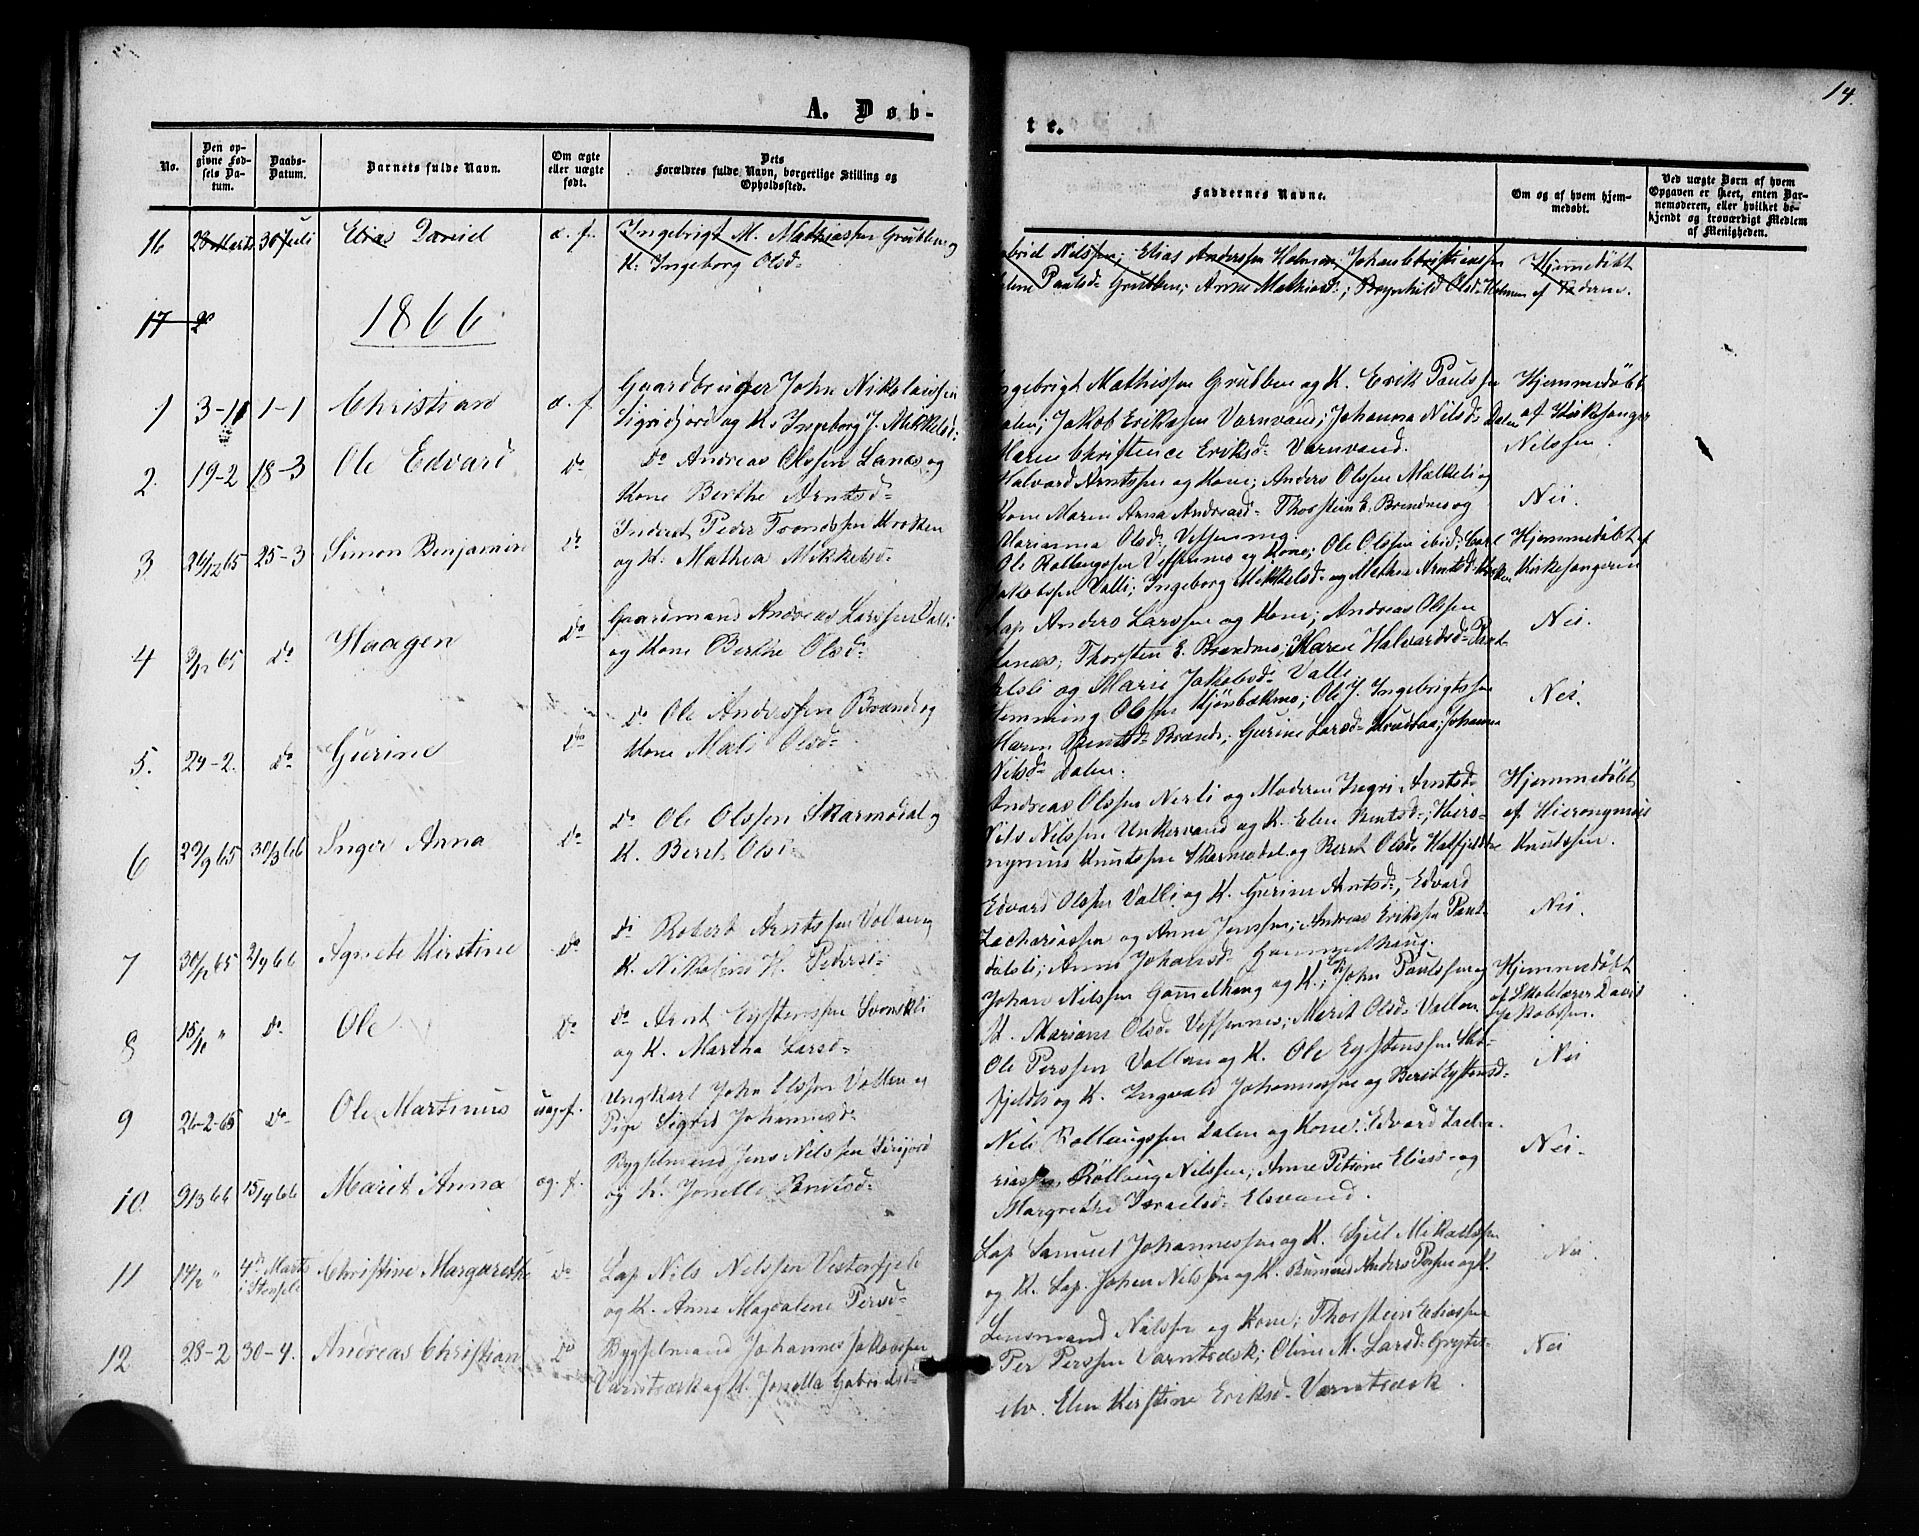 14.
A. Døb-
te.
No.
Den op-
givne Fød-
sels Da-
tum.
Daabs-
Datum.
Barnets fulde Navn.
Om ægte
eller uægte
født.
Dets
Forældres fulde Navn, borgerlige Stilling og
Opholdssted.
Faddernes Navne.
Om og af hvem hjem-
medøbt.
Ved uægte Børn af hvem
Opgaven er skeet, enten Bar-
nemoderen, eller hvilket be-
kjendt og troværdigt Medlem
af Menigheden.
16 23 Marts 30 Juli Elias Daniel æ. f. Ingebrigt M. Mathiassen Grubben og
K. Ingeborg Olsd.
Nilssen; Elias Anderssen Holmen, Johan Christianssen
Paulsd. Grubben; Anne Mathiasd.; Ragnhild Olsd. Holmen
Hjemmedøbt
af Faderen.
17
1866
1 1-1 Christian æ. f. Gaardbruger John Nikolaissen
Sigridfjord og K. Ingeborg J. Mikkelsd.
Ingebrigt Mathissen Grubben og K. Erik Paulssen
Dalen; Jakob Erikssen Varnvand; Johanna Nilsd. Dalen
Maren Christence Eriksd. Varnvand.
Hjemmedøbt
af Kirkesanger
Nilssen.
2. 19-2 18-3 Ole Edvard do do Andreas Olssen Lanæs og
Kone Berthe Arntsd.
Halvard Arntssen og Kone; Anders Olssen Mælkeli og
Kone Maren Anna Andreasd. Thorstein E. Brændnes og
Marianna Olsd. Vefsenmo.
Nei.
3 26/12 65 25-3 Simon Benjamin do Inderst Peder Trondssen Krokken
og K. Mathea Mikkelsd.
Ole Rollaugssen Vefsenmo og Kone; Ole Olssen ibid; Carl
Jakobssen Valli; Ingeborg Mikkelsd. og Mathea Arntsd. Krokken
Hjemmedøbt af
Kirkesangeren
4 do Haagen do Gaardmand Andreas Larssen Valli
og Kone Berthe Olsd.
Lap Anders Larssen og Kone; Andreas Olssen
Lanæs; Thorsten E. Brændnes; Karen Halvardsd. Pant-
dalsli og Marie Jakobsd. Valli
Nei.
5. 24-2. do Gurine do do Ole Anderssen Brænde og
Kone Mali Olsd.
Hemming Olssen Kjønbækmo; Ole J. Ingebrigtssen
Maren Bentsd. Brænde; Gurine Larsd. Krudtaa; Johanna
Nilsd. Dalen.
Nei.
6 29/9 65 30/3 66 Inger Anna do do Ole Olssen Skarmodal og
K. Beret Olsd.
Andreas Olssen Nerli og Moderen Ingri Arntsd.
Nils Nilssen Unkervand og K. Elen Bentsd.; Hiero-
nymus Knutssen Skarmodal og Beret Olsd. Hatfjeldde
Hjemmedøbt
af Hieronymus
Knutssen.
7 30/12 65 2/4 66 Agnete Kirstine do do Robert Arntssen Vollan og
K. Nikoline H. Pedersd.
Edvard Olssen Valli og K. Gurine Arntsd., Edvard
Zachariassen og Anne Jenssen; Andreas Erikssen Pant-
dalsli; Anne Johansd. Gammelhaug.
Nei.
8 15/1 " do Ole do do Arnt Eystenssen Svenskli
og K. Martha Larsd.
Johan Nilssen Gammelhaug og K. Lap John Paulssen og
K. Mariane Olsd. Vefsenmo; Marit Olsd. Vollan
Hjemmedøbt
af Skolelærer David
Jakobsen.
9 26-2-65 do Ole Martinus uæg. f. Ungkarl John Elssen Vollan og
Pige Sigrid Johannesd.
Ole Perssen Vollan og K. Ole Eystenssen Hat-
fjelds og K. Ingvald Johannessen og Berit Eystensd.
Nei
10 9/3 66 15/4 66 Marit Anna æg. f. Bygselmand Jens Nilssen Sirijord
og K. Jonelle Bentsd.
Nils Rollaugssen Dalen og Kone; Edvard Zacha-
riassen, Rollaug Nilssen; Anne Petrine Eliasd. og
Margrethe Israelsd. Elsvand.
Nei.
11 14/2 " 4de Marts
i Stensele Christine Margarethe do Lap Nils Nilssen Vesterfjeld
og K. Anne Magdalene Persd.
Lap Samuel Johannessen og K. Sjul Mikalssen
og K. Lap Johan Nilssen og K. Anders Perssen og K.
Nei.
12 28-2 30-4. Andreas Christian do Bygselmand Johannes Jakobssen
Varntræsk og K. Jonella Gabrielsd.
Lensmand Nilssen og Kone; Thorstein Eliassen
Per Perssen Varntræsk; Oline M. Larsd. Gryte-
elv. Elen Kirstine Eriksd. Varntræsk.
Nei